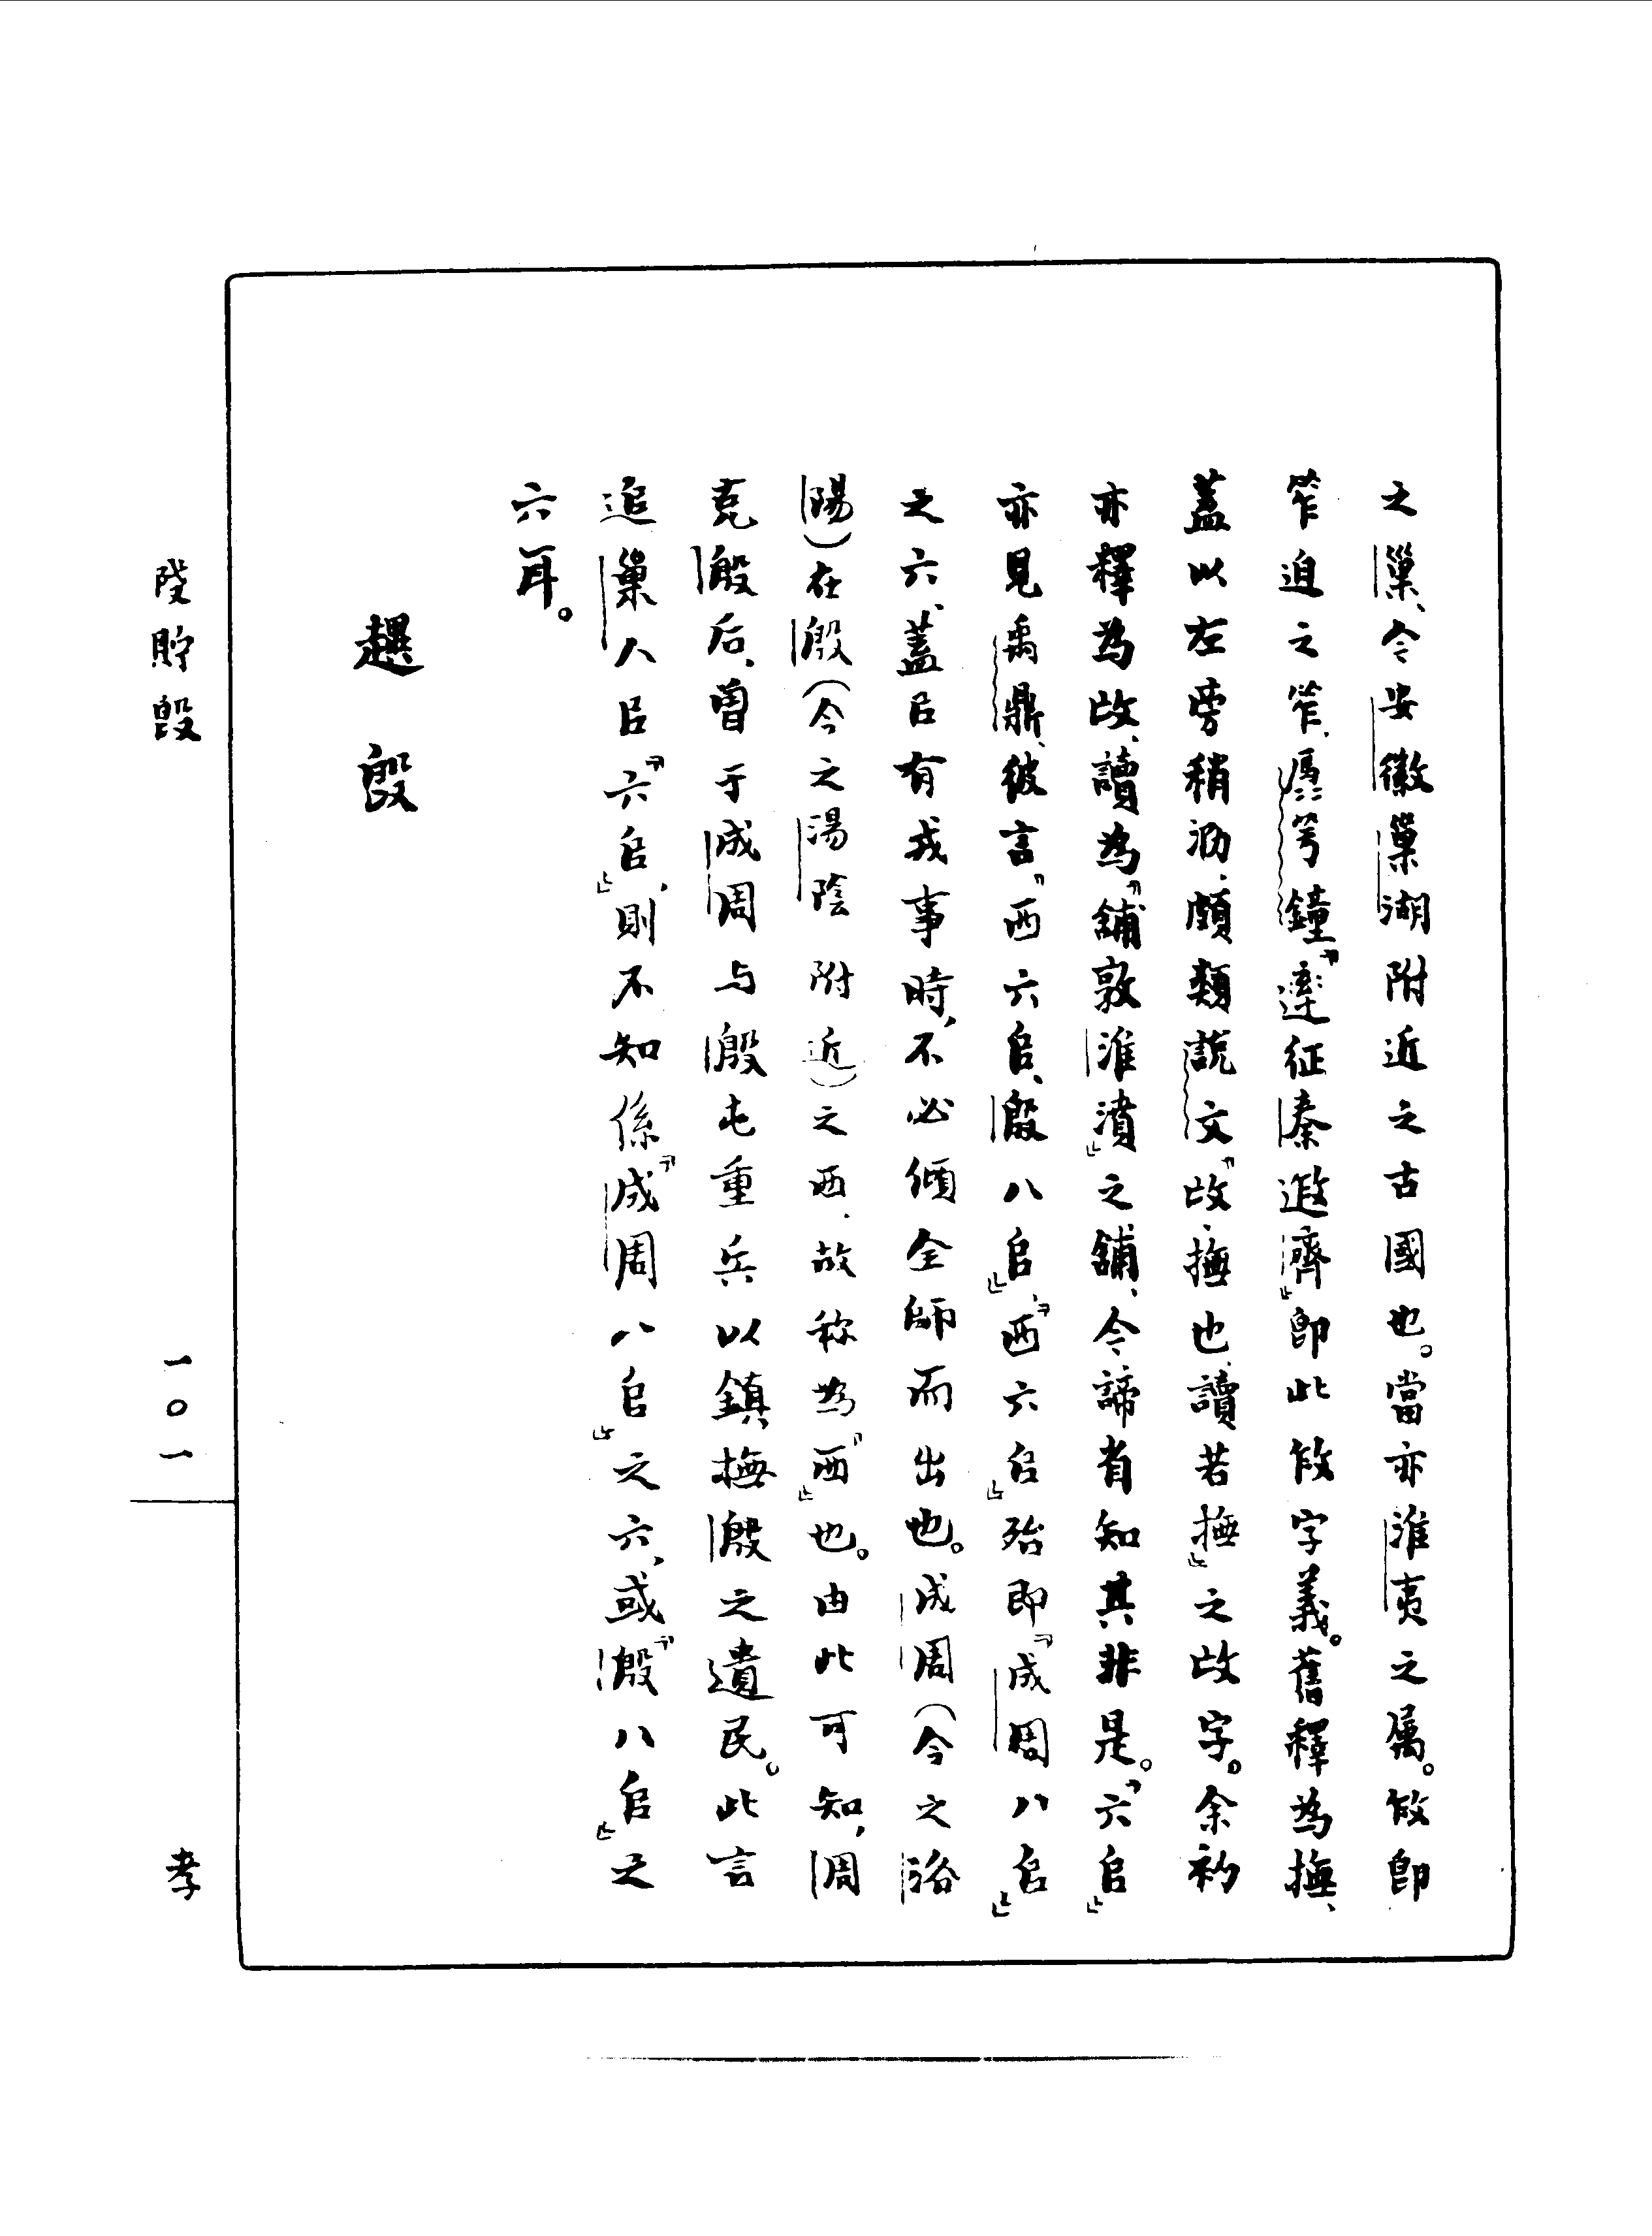 之巢、今安徽巢湖附近之古國也。當亦淮夷之屬。㣇即
笮迫之笮、驫芎鐘「達征秦迮齊」即此字義。舊釋為撫、
蓋以左旁稍泐、頗類說文「㪃、撫也、讀若撫」之㪃字。余初
亦釋為㪃、讀為「鋪敦淮濆」之鋪、今諦省知其非是。「六𠂤」
亦見禹鼎、彼言「西六𠂤、殷八𠂤」、「西六𠂤」殆即「成周八𠂤」
之六、蓋𠂤有戎事時、不必傾全師而出也。成周(今之洛
陽)在殷(今之湯陰附近)之西、故称為「西」也。由此可知、周
克殷后、曾于成周与殷屯重兵以鎮撫殷之遺民。此言
追巢人𠂤「六𠂤」、則不知係「成周八𠂤」之六、或「殷八𠂤」之
六耳。
趩𣪘
㱿貯𣪘
一〇一
孝